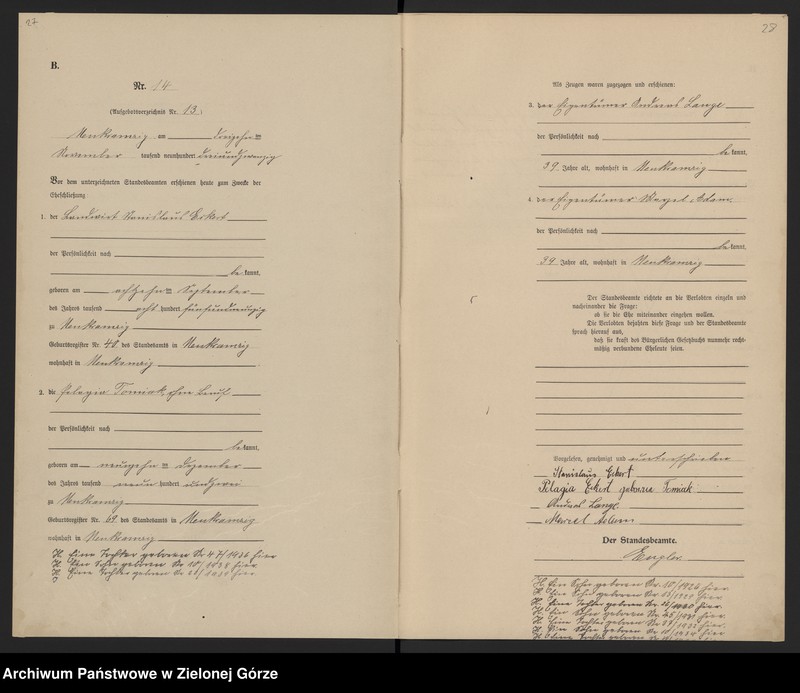 27
B.
Nr. 14
(Aufgebotverzeichnis Nr. 13.)
Neukramzig am dreizehnten
November tausend neunhundert dreiundzwanzig
Vor dem unterzeichneten Standesbeamten erschienen heute zum Zwecke der
Eheschließung:
1. der Landwirt Stanislaus Eckert
der Persönlichkeit nach
be kannt,
geboren am achtzehnten September
des Jahres tausend acht hundert fünfundneunzig
zu Neukramzig
Geburtsregister Nr. 40 des Standesamts in Neukramzig
wohnhaft in Neukramzig
2. die Pelagia Tomiak, ohne Beruf
der Persönlichkeit nach
be kannt,
geboren am neunzehnten Dezember
des Jahres tausend neun hundert und zwei
zu Neukramzig
Geburtsregister Nr. 69 des Standesamts in Neukramzig
wohnhaft in Neukramzig
H. Eine Tochter geboren Nr 47/1936 hier
H. Ein Sohn geboren Nr 10/1938 hier.
H. Eine Tochter geboren Nr
28
Als Zeugen waren zugezogen und erschienen:
3. der Eigentümer Andreas Lange
der Persönlichkeit nach
be kannt,
39 Jahre alt, wohnhaft in Neukramzig
4. der Eigentümer Adam
der Persönlichkeit nach
be kannt,
39 Jahre alt, wohnhaft in Neukramzig
Der Standesbeamte richtete an die Verlobten einzeln und
nacheinander die Frage:
ob sie die Ehe miteinander eingehen wollen.
Die Verlobten bejahten diese Frage und der Standesbeamte
sprach hierauf aus,
daß sie kraft des Bürgerlichen Gesetzbuchs nunmehr recht-
mäßig verbundene Eheleute seien.
Vorgelesen, genehmigt und unterschrieben
Stanislaus Eckert
Pelagia Eckert geborene Tomiak
Andreas Lange
Adam
Der Standesbeamte.
Engler
H. Ein Sohn geboren Nr. 10/1924 hier.
H. Ein Sohn geboren Nr. hier.
H. Eine Tochter geboren Nr. hier.
H. Ein Sohn geboren Nr. hier.
H. Eine Tochter geboren Nr. hier.
H. Ein Sohn geboren Nr. hier.
H. Eine Tochter geboren Nr.
Archiwum Państwowe w Zielonej Górze